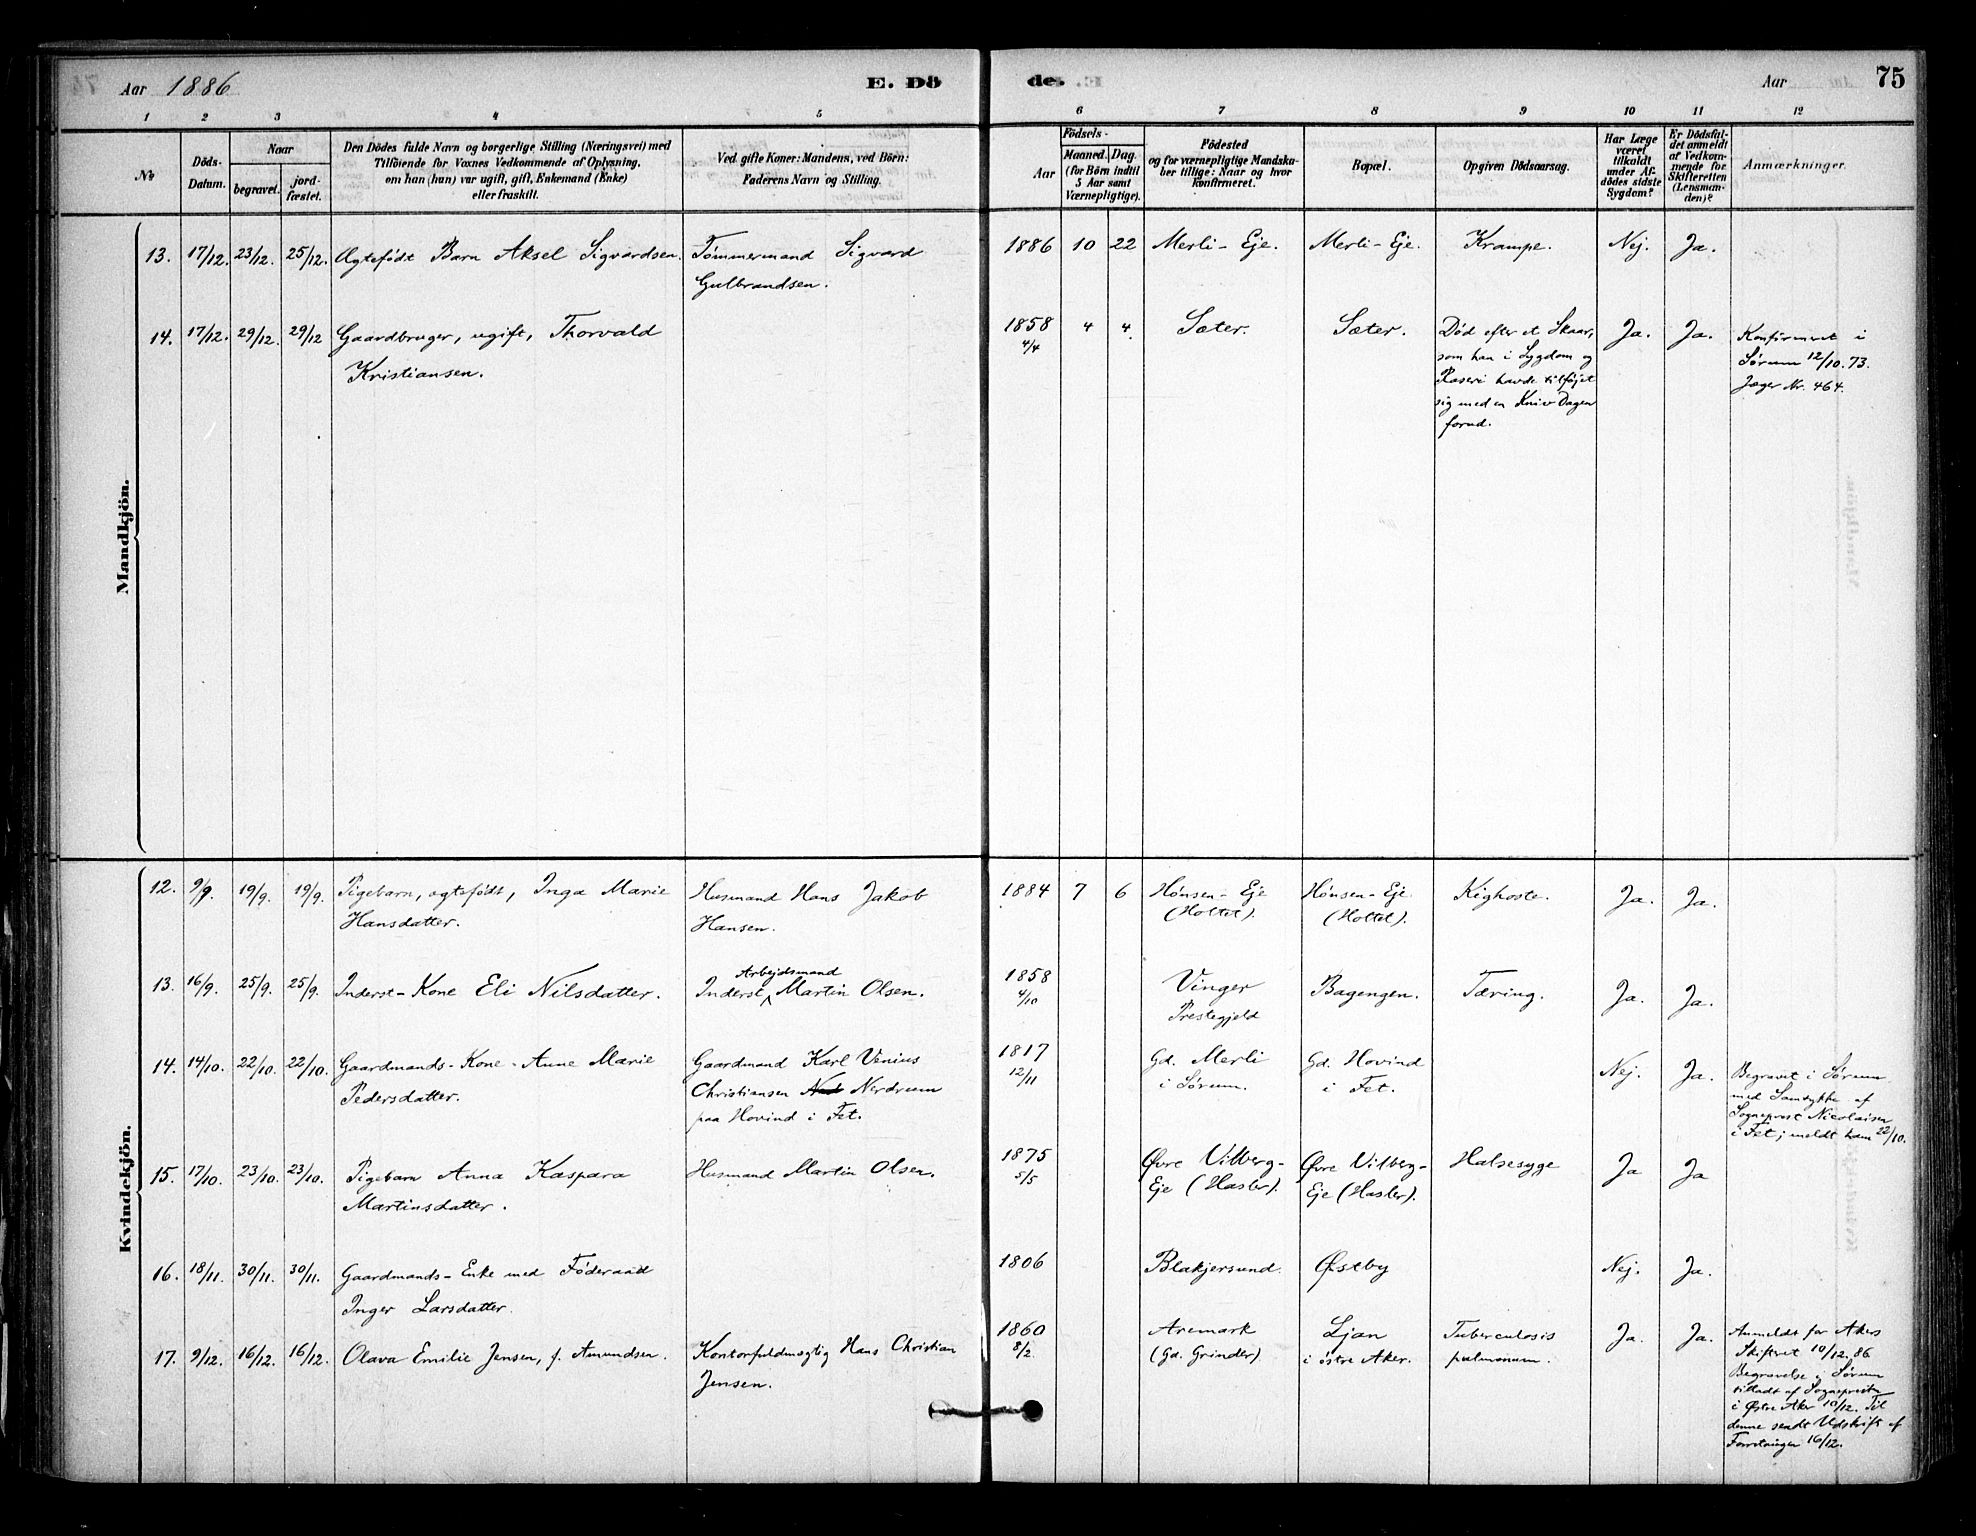 Aar 1886
E. Dö
de.
Aar
75
1 2 3 4 5 6 7 8 9 10 11 12
No
Döds-
Datum.
Naar
begravet.
jord-
fæstet.
Den Dödes fulde Navn og borgerlige Stilling (Næringsvei) med
Tilföiende for Voxnes Vedkommende af Oplysning,
om han (hun) var ugift, gift, Enkemand (Enke)
eller fraskilt.
Ved gifte Koner: Mandens, ved Börn:
Faderens Navn og Stilling.
Födsels-
Aar
Maaned. Dag.
(for Börn indtil
5 Aar samt
Værnepligtige).
Födested
og for værnepligtige Mandska-
ber tillige: Naar og hvor
konfirmeret.
Bopæl.
Opgiven Dödsaarsag.
Har Læge
været
tilkaldt
under Af-
dödes sidste
Sygdom?
Er Dödsfal-
det anmeldt
af Vedkom-
mende for
Skifteretten
(Lensman-
den)?
Anmærkninger.
Mandkjön.
13. 17/12. 23/12. 25/12. Ægtefødt Barn Aksel Sigvardsen. Tømmermand Sigvard
Gulbrandsen.
1886 10 22 Merli-Eje. Merli-Eje. Krampe. Nej. Ja.
14. 17/12. 29/12. 29/12 Gaardbruger, ugift, Thorvald
Kristiansen.
1858 4 4. Sæter. Sæter. Død efter et Skaar,
4/4
som han i Sygdom og
Raseri havde tilføjet
sig med en Kniv Dagen
forud.
Ja. Ja.
Konfirmeret i
Sørum 12/10.73.
Jæger Nr. 464.
Kvindekjön.
12. 9/9. 19/9. 19/9. Pigebarn, ægtefødt, Inga Marie
Hansdatter.
Husmand Hans Jakob
Hansen.
1884 7 6 Hønsen-Eje
(Holtet).
Hønsen-Eje.
(Holtet).
Kighoste. Ja. Ja.
13. 16/9. 25/9. 25/9. Inderst-Kone Eli Nilsdatter.
Arbejdsmand
Inderst Martin Olsen.
1858
4/10
Vinger
Prestegjeld
Bagengen. Tæring. Ja. Ja.
14. 14/10. 22/10. 22/10. Gaardmands-Kone-Anne Marie
Pedersdatter.
Gaardmand Karl Venius
Christiansen Nerdrum
paa Hovind i Fet.
1817
12/11
Gd. Merli
i Sørum.
Gd. Hovind
i Fet.
Nej. Ja.
Begravet i Sørum
med Samtykke af
Sogneprest Nicolaisen
i Fet; meldt ham 22/10.
15. 17/10. 23/10. 23/10. Pigebarn Anna Kaspara
Martinsdatter.
Husmand Martin Olsen.
1875
5/5
Øvre Vilberg-
Eje (Hasler).
Øvre Vilberg-
Eje (Hasler).
Halsesyge Ja Ja
16. 18/11. 30/11. 30/11. Gaardmands-Enke med Føderaad
Inger Larsdatter.
1806 Blakjersund. Østby Nej. Ja.
17. 9/12. 16/12. 16/12. Olava Emilie Jensen, f. Amundsen.
Kontorfuldmægtig Hans Christian
Jensen.
1860
8/2
Aremark
(Gd. Grinder).
Ljan
i østre Aker.
Tuberculosis
pulmonum.
Ja. Ja.
Anmeldt for Akers
Skifteret 10/12.86
Begravelse i Sørum
tilladt af Sognepresten
i Østre Aker 10/12. Til
denne sendt Udskrift af
Forretningen 16/12.